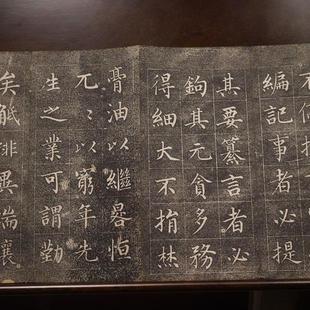 編記事者必提
其要纂言者必
鉤其元貪多務
得細大不捐焚
膏油以繼晷恒
兀〻以窮年先
生之業可謂勤
矣觝排異端攘